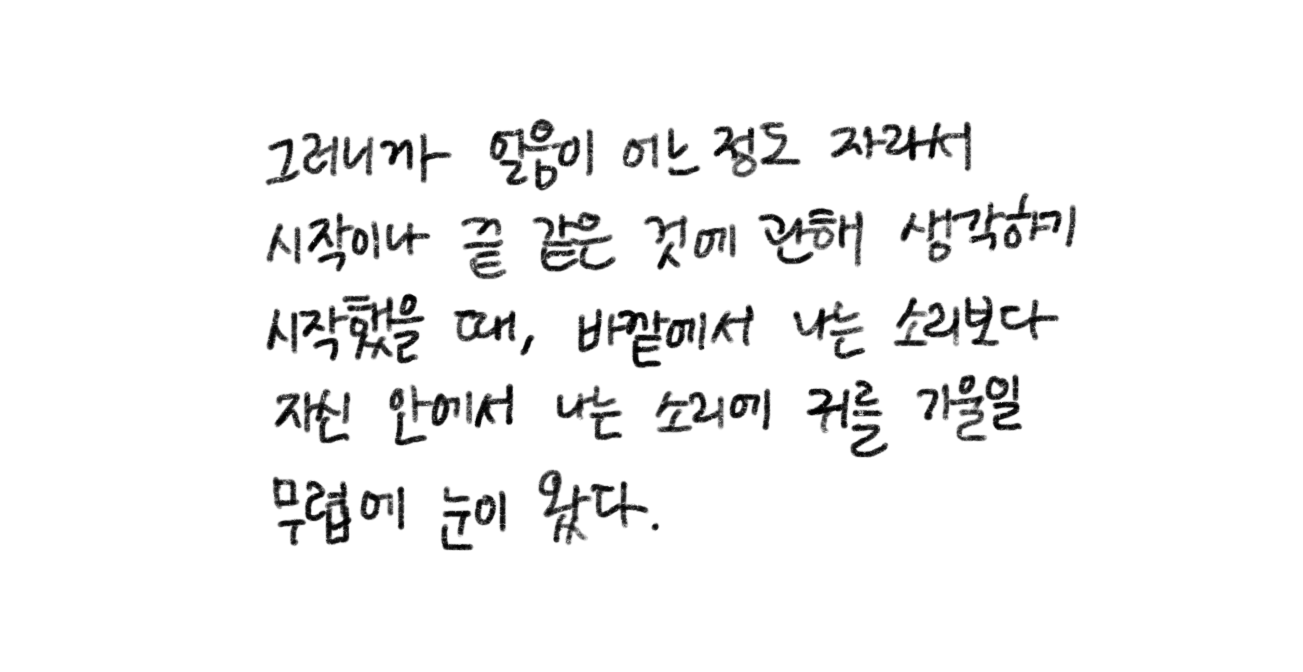 그러니까 얼음이 어느 정도 자라서
시작이나 끝 같은 것에 관해 생각하기
시작했을 때, 바깥에서 나는 소리보다
자신 안에서 나는 소리에 귀를 기울일
무렵에 눈이 왔다.